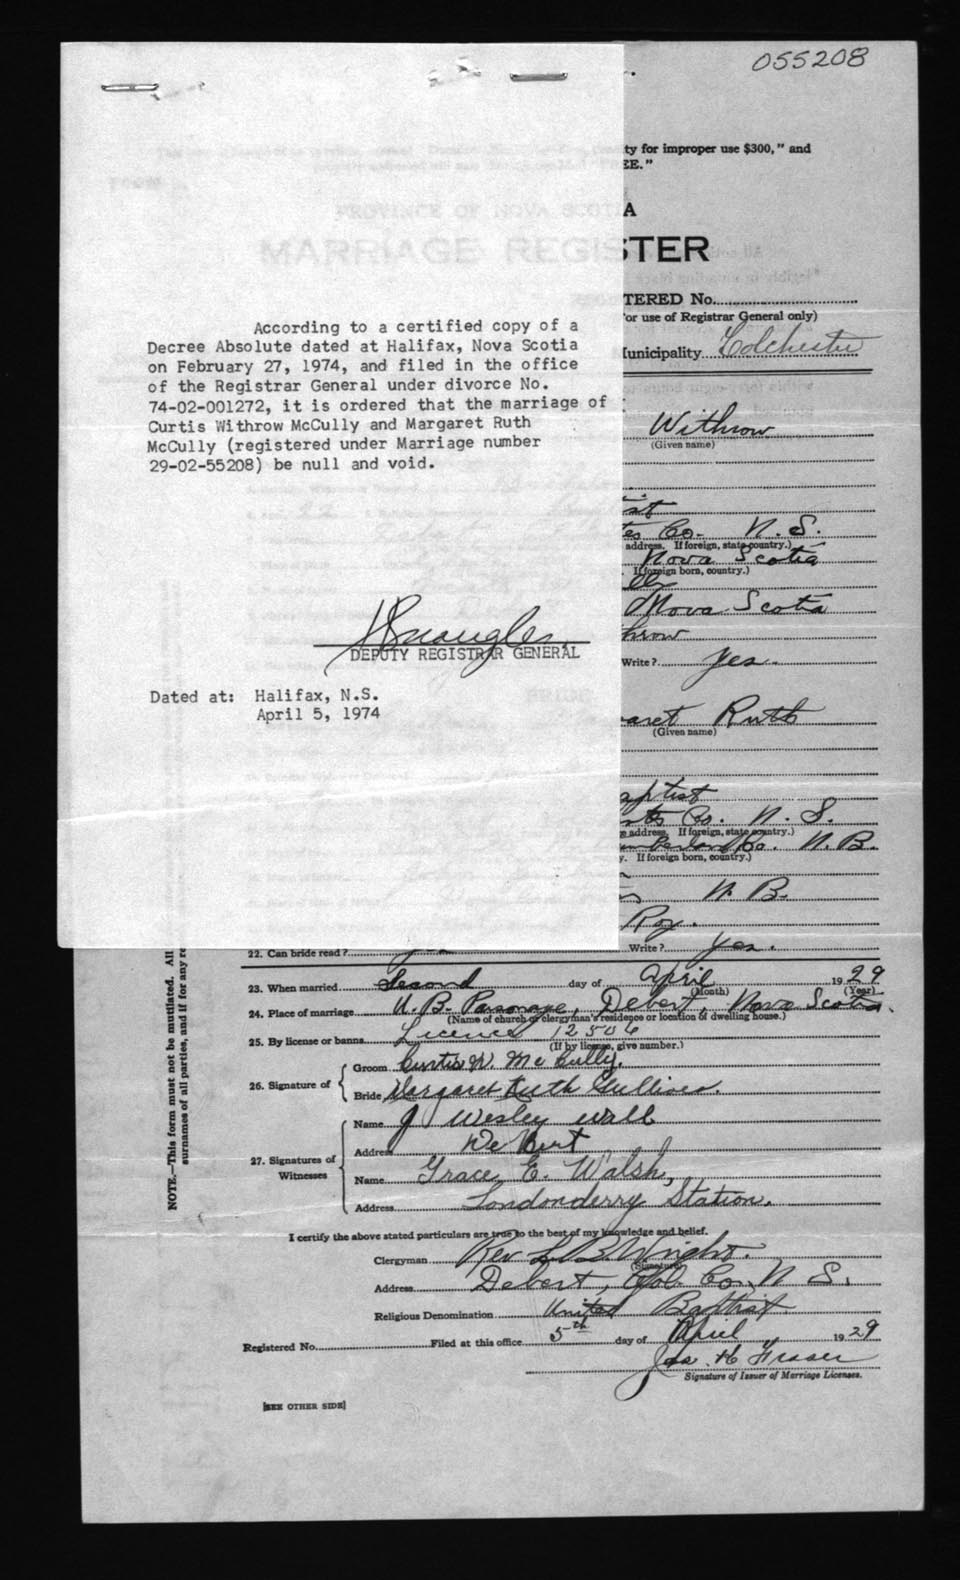 055208
ty for improper use $300," and
EE."
PROVINCE OF NOVA SCOTIA
MARRIAGE REGISTER
TERED No.
For use of Registrar General only)
Municipality Colchester
According to a certified copy of a
Decree Absolute dated at Halifax, Nova Scotia
on February 27, 1974, and filed in the office
of the Registrar General under divorce No.
74-02-001272, it is ordered that the marriage of
Curtis Withrow McCully and Margaret Ruth
McCully (registered under Marriage number
29-02-55208) be null and void.
DEPUTY REGISTRAR GENERAL
Dated at: Halifax, N.S.
April 5, 1974
Withrow
(Given name)
Co. N. S.
address. If foreign, state country.)
Nova Scotia
If foreign born, country.)
Nova Scotia
hrow
Write? Yes.
aret Ruth
(Given name)
aptist
Co. N. S.
address. If foreign, state country.)
Co. N. B.
y. If foreign born, country.)
N. B.
Roy.
22. Can bride read? Write? Yes.
23. When married Second day of April 1929
(Month) (Year)
24. Place of marriage U. B. Parsonage, Debert, Nova Scotia.
(Name of church or clergyman's residence or location of dwelling house.)
25. By license or banns Licence 12506
(If by license, give number.)
26. Signature of Groom Curtis W. McCully.
Bride Margaret Ruth Gulliver.
27. Signatures of Witnesses
Name J Wesley Wall
Address DeBert
Name Grace E. Walsh,
Address Londonderry Station.
I certify the above stated particulars are true to the best of my knowledge and belief.
Clergyman Rev L. B. Wright.
(Signature)
Address Debert, Col. Co., N. S.
Religious Denomination United Baptist
Registered No. Filed at this office 5th day of April 1929
Jas. H. Fraser
Signature of Issuer of Marriage Licenses.
[SEE OTHER SIDE]
NOTE.—This form must not be mutilated. All
surnames of all parties, and if for any re